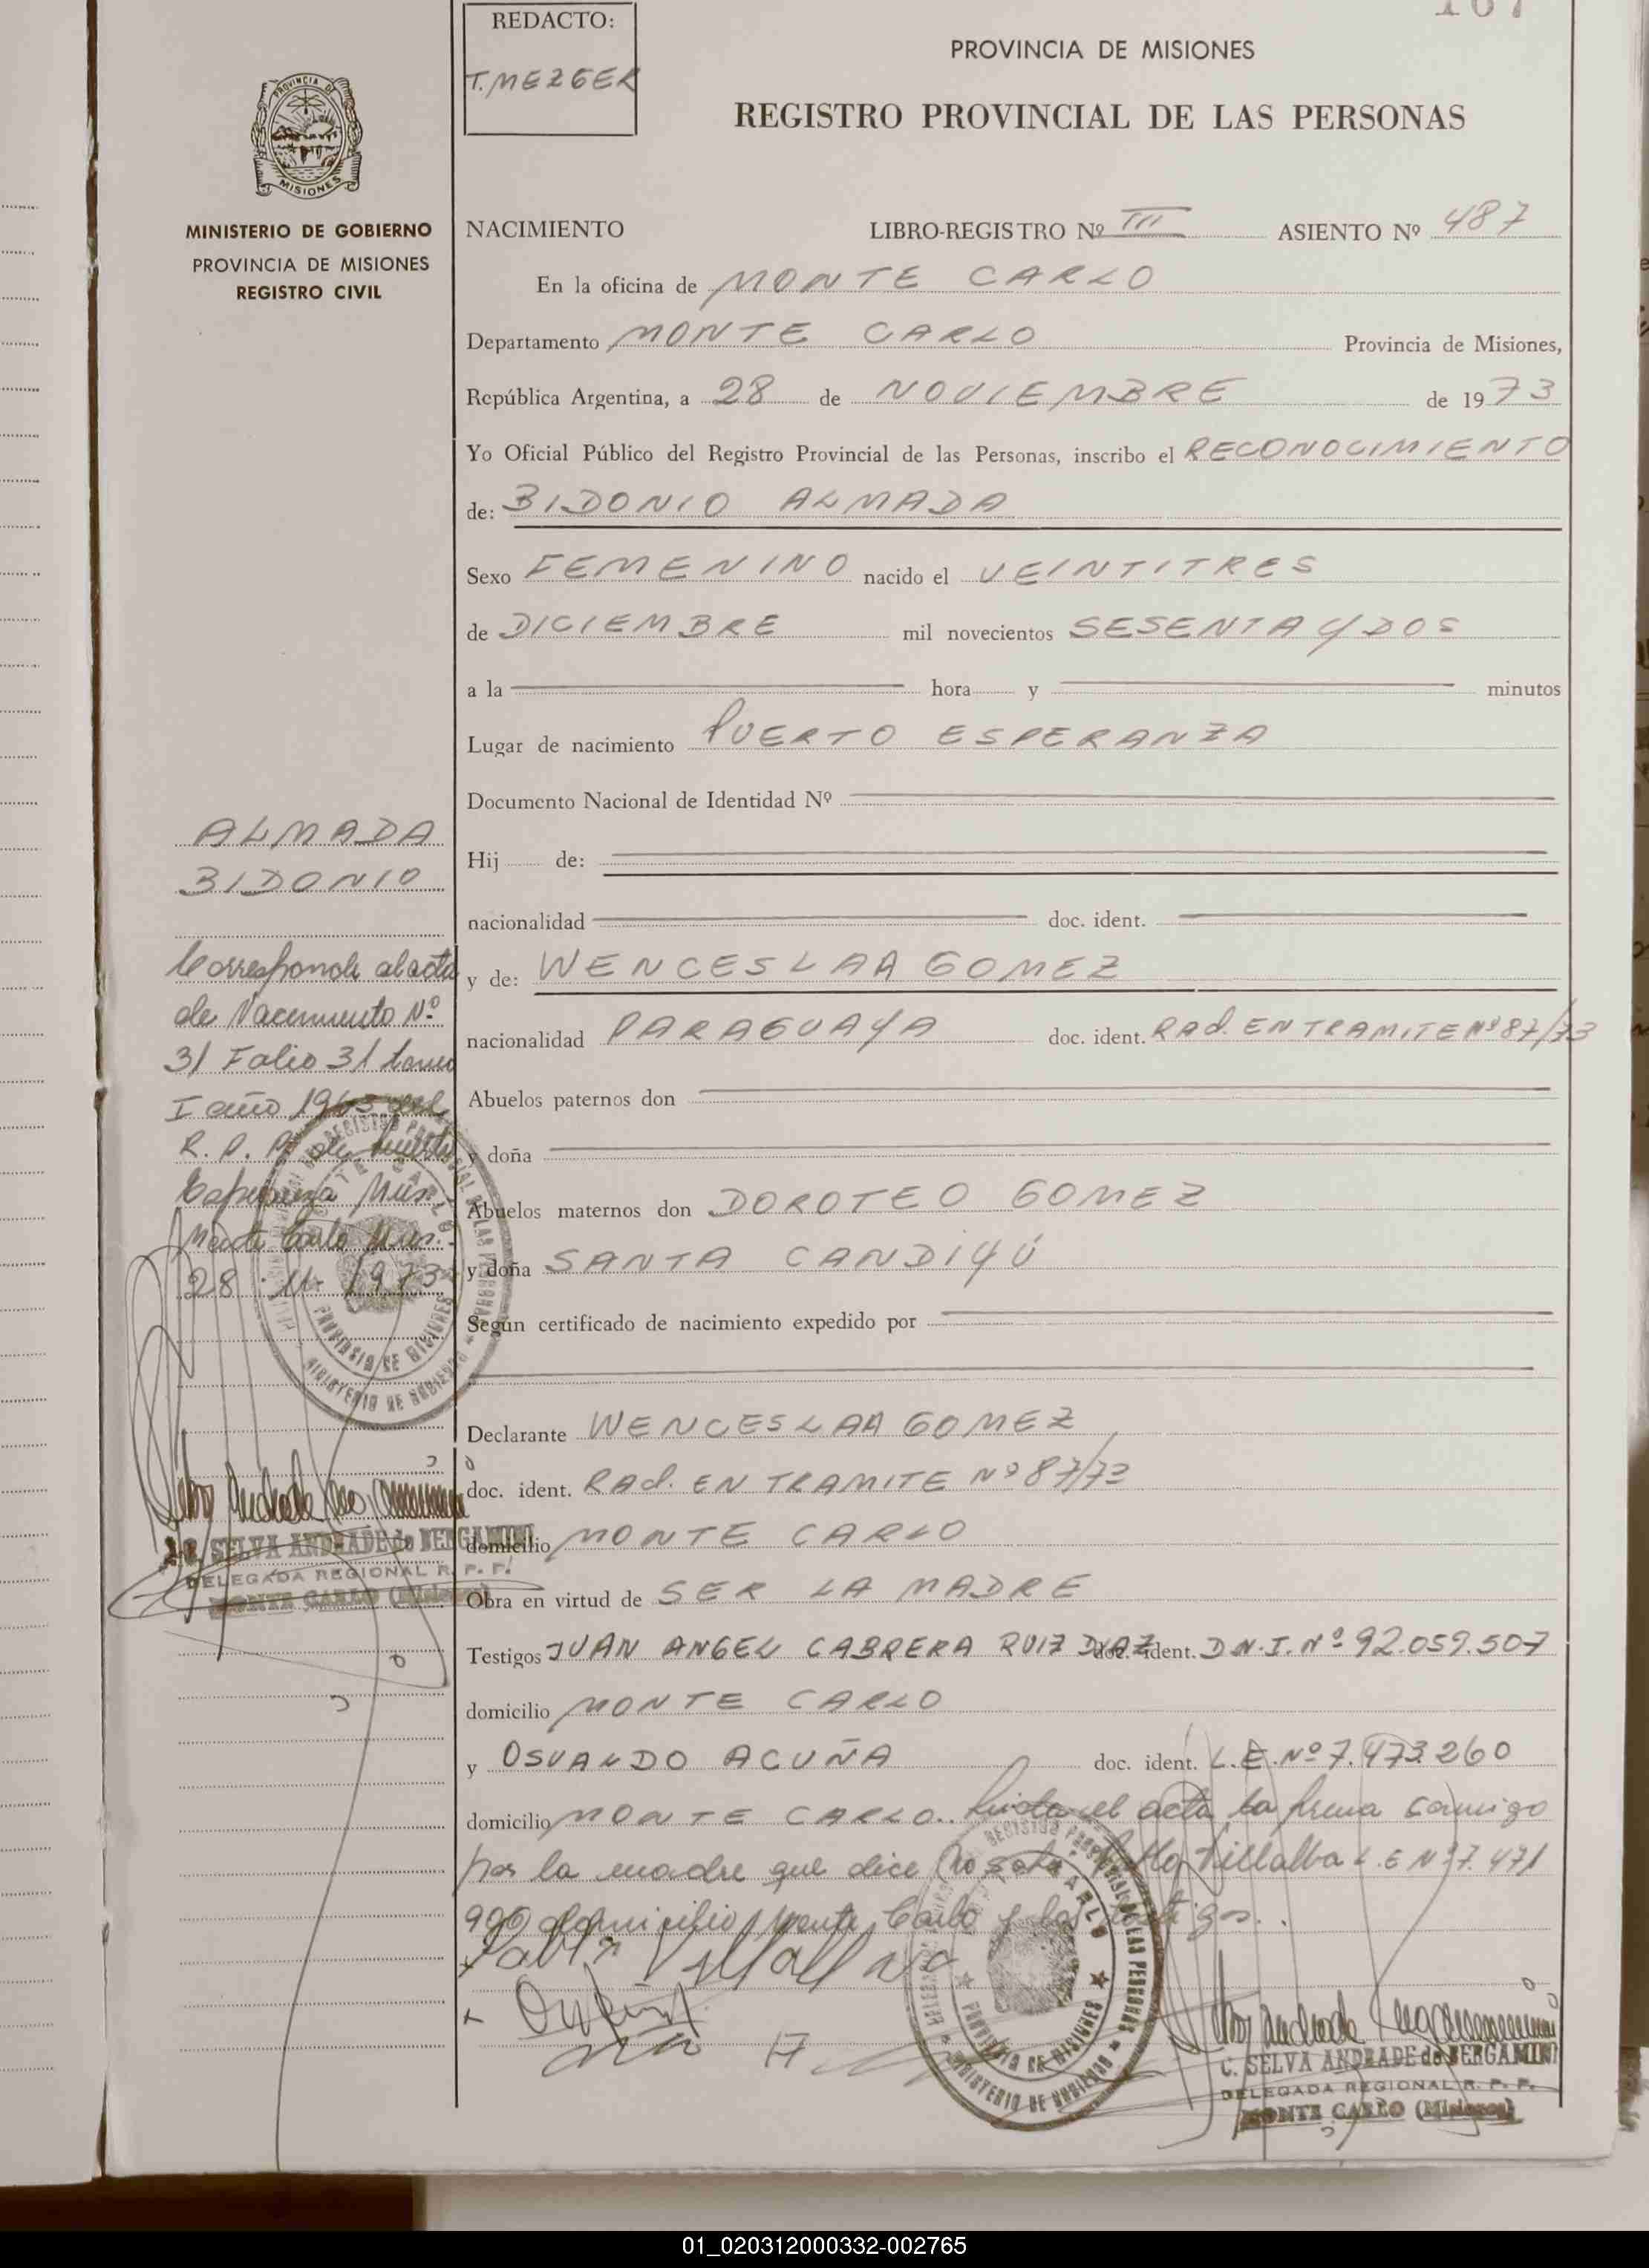 REDACTO:
T. MEZGER
PROVINCIA DE MISIONES
REGISTRO PROVINCIAL DE LAS PERSONAS
PROVINCIA DE
MISIONES
MINISTERIO DE GOBIERNO
PROVINCIA DE MISIONES
REGISTRO CIVIL
NACIMIENTO LIBRO-REGISTRO Nº III ASIENTO Nº 487
En la oficina de MONTE CARLO
Departamento MONTE CARLO Provincia de Misiones,
República Argentina, a 28 de NOVIEMBRE de 1973
Yo Oficial Público del Registro Provincial de las Personas, inscribo el RECONOCIMIENTO
de: BIDONIO ALMADA
Sexo FEMENINO nacido el VEINTITRES
de DICIEMBRE mil novecientos SESENTA Y DOS
a la hora y minutos
Lugar de nacimiento PUERTO ESPERANZA
Documento Nacional de Identidad Nº
Hij de:
nacionalidad doc. ident.
y de: WENCESLAA GOMEZ
nacionalidad PARAGUAYA doc. ident. RAd. EN TRAMITE Nº 87/73
Abuelos paternos don
y doña
Abuelos maternos don DOROTEO GOMEZ
y doña SANTA CANDIYÚ
Según certificado de nacimiento expedido por
Declarante WENCESLAA GOMEZ
doc. ident. RAd. EN TRAMITE Nº 87/73
domicilio MONTE CARLO
Obra en virtud de SER LA MADRE
Testigos JUAN ANGEL CABRERA RUIZ DIAZ doc. ident. D.N.I. Nº 92.059.507
domicilio MONTE CARLO
y OSVALDO ACUÑA doc. ident. L.E. Nº 7.473.260
domicilio MONTE CARLO. el acta la firma conmigo
por la madre que dice no Pablo Villalba L.E Nº 7.471
990 domicilio Monte Carlo y los testigos.
Pablo Villalba
ALMADA
BIDONIO
Corresponde al acta
de Nacimiento Nº
31 Folio 31 tomo
I año 1963 del
R. P. P. de Puerto
Esperanza Mis.
Monte Carlo Mis.
28-11-1973
C. SELVA ANDRADE de BERGAMINI
DELEGADA REGIONAL R. P. P.
MONTE CARLO (Misiones)
C. SELVA ANDRADE de BERGAMINI
DELEGADA REGIONAL R. P. P.
MONTE CARLO (Misiones)
01_020312000332-002765